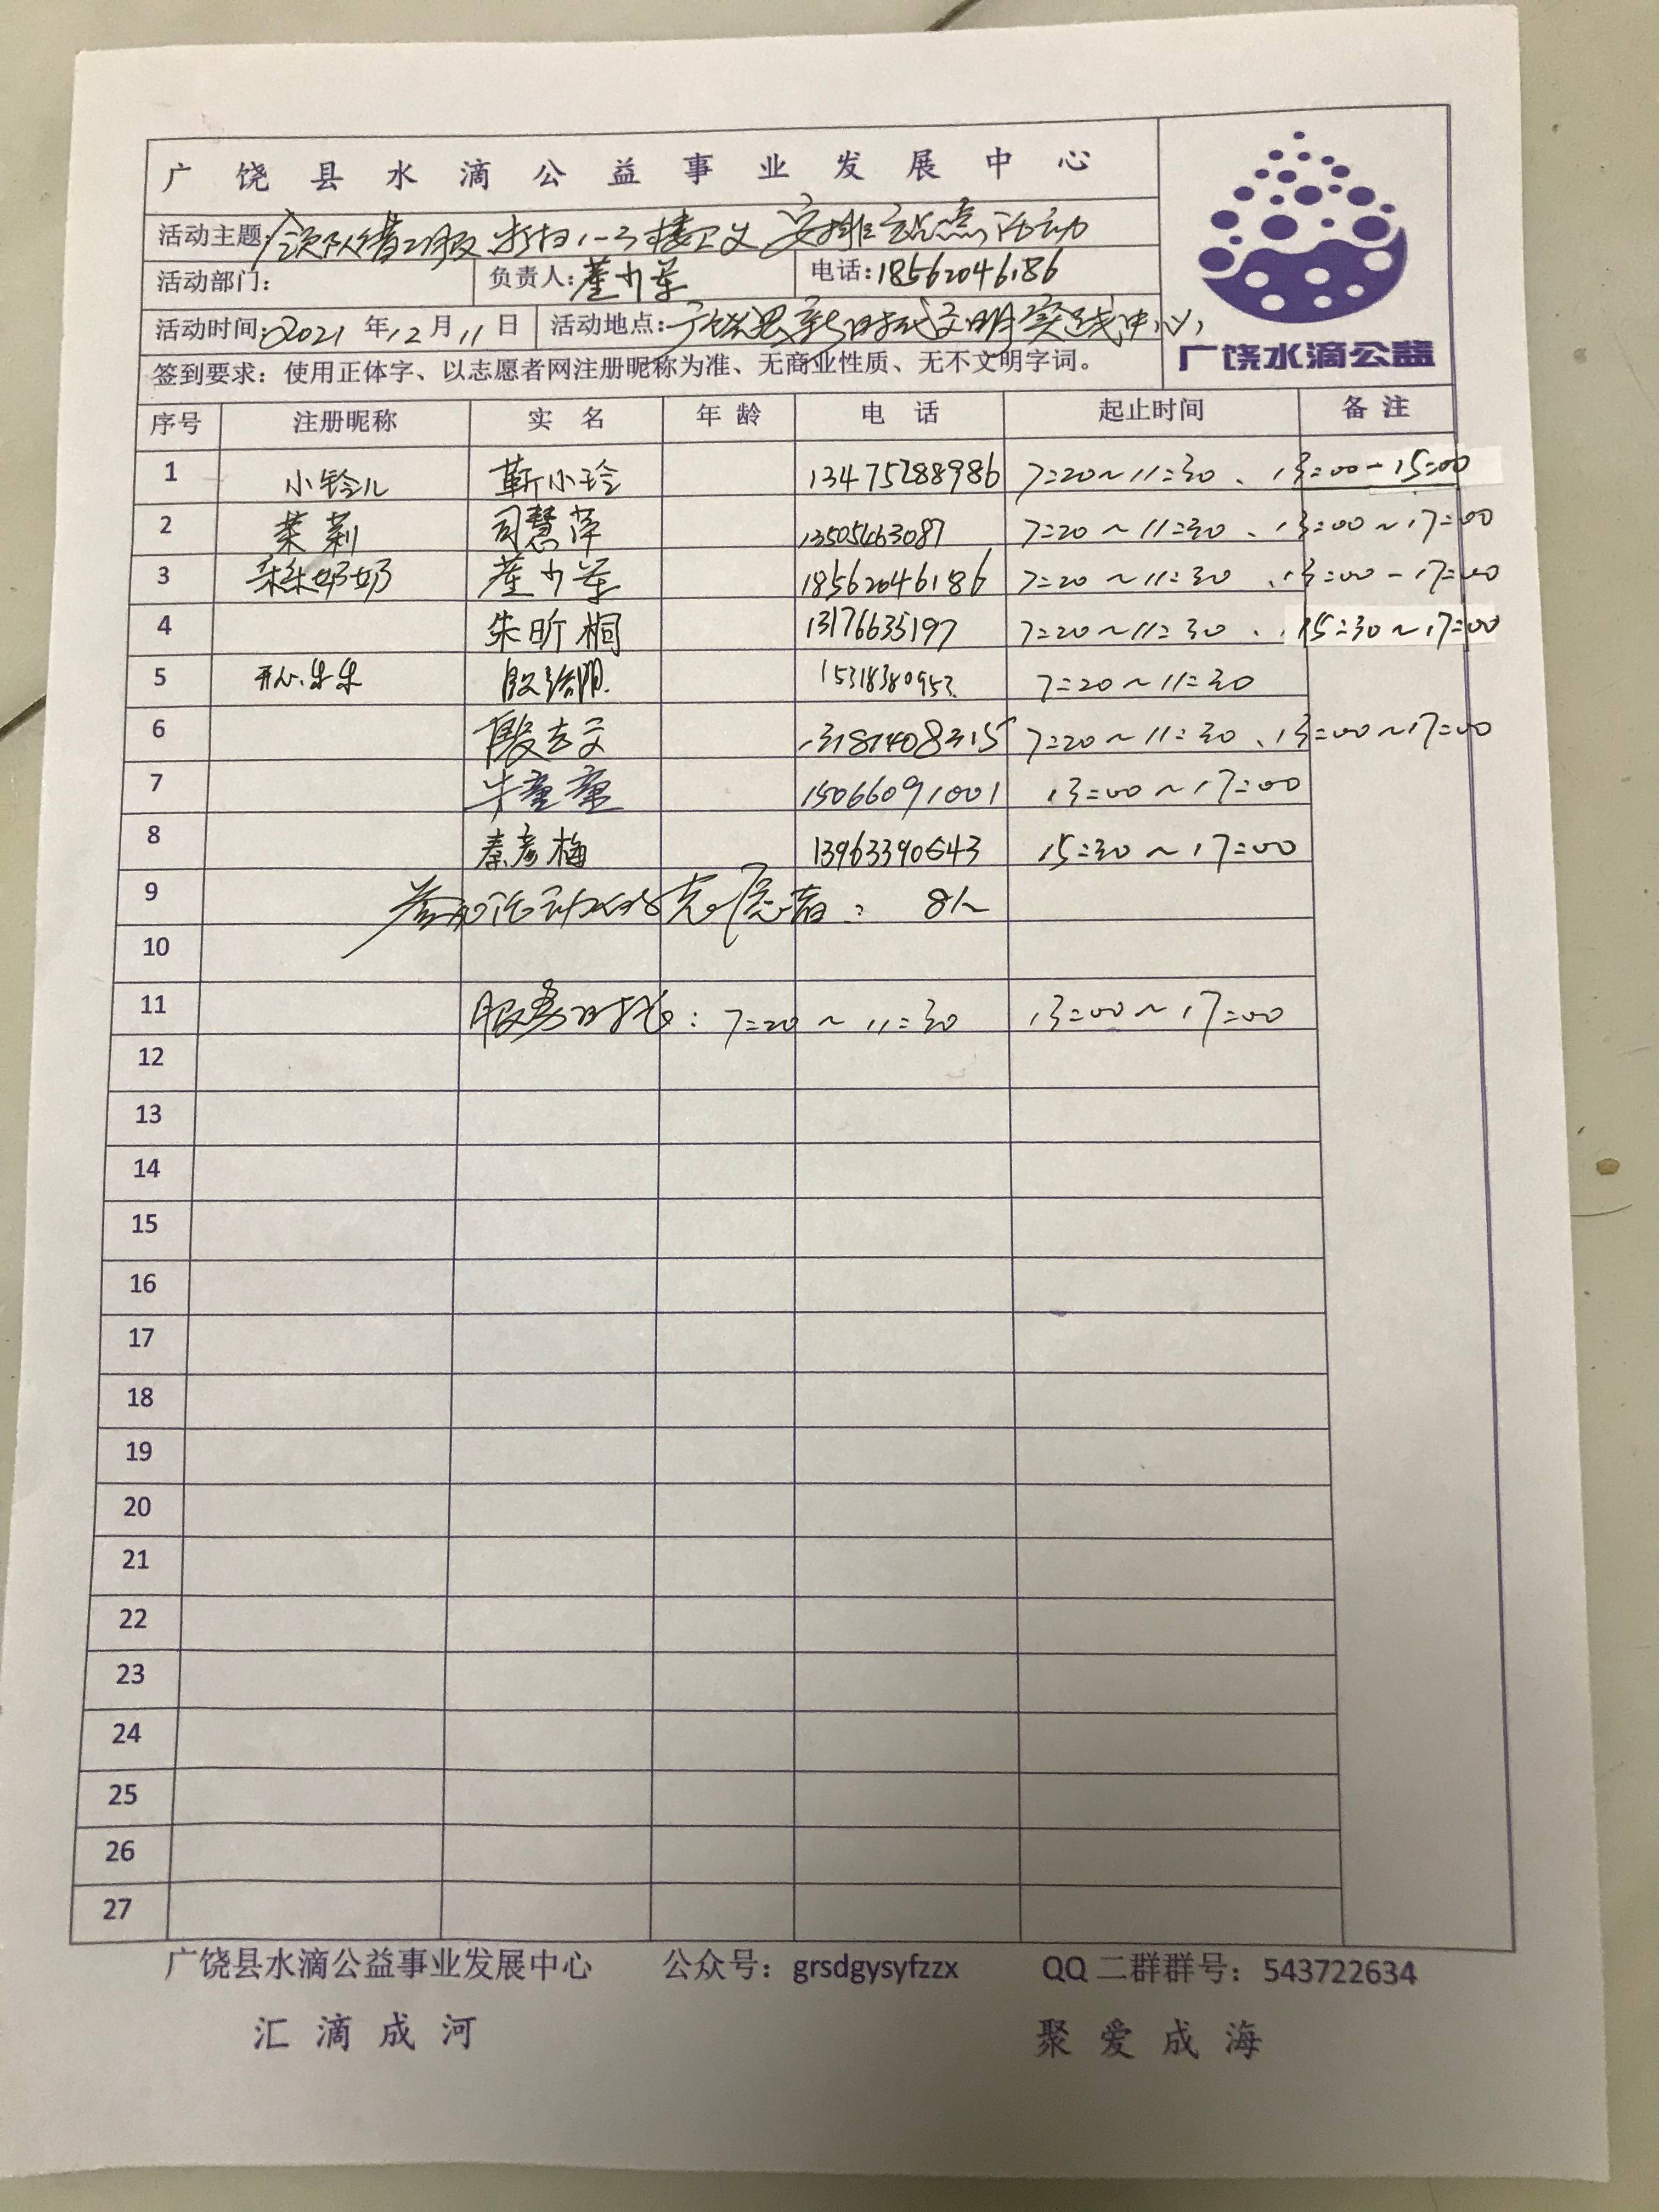 广饶县水滴公益事业发展中心
活动主题: 打扫1-3楼卫生 安排站点活动
活动部门: 负责人: 电话:18562046186
活动时间:2021年12月11日 活动地点:广饶县新时代文明实践中心
广饶水滴公益
签到要求：使用正体字、以志愿者网注册昵称为准、无商业性质、无不文明字词。
序号 注册昵称 实名 年龄 电话 起止时间 备注
1 小铃儿 靳小玲 13475288986 7:20~11:30、13:00-15:00
2 茉莉 司慧萍 13505463087 7:20~11:30、13:00~17:00
3 朵朵奶奶 18562046186 7:20~11:30、13:00-17:00
4 朱昕桐 13176635197 7:20~11:30、15:30~17:00
5 开心乐乐 15318380953 7:20~11:30
6 7:20~11:30、13:00~17:00
7 牛童童 15066091001 13:00~17:00
8 秦彦梅 13963390643 15:30~17:00
9 参加活动的志愿者: 8人
10
11 服务时长: 7:20~11:30 13:00~17:00
12
13
14
15
16
17
18
19
20
21
22
23
24
25
26
27
广饶县水滴公益事业发展中心 公众号：grsdgysyfzzx QQ二群群号：543722634
汇滴成河 聚爱成海